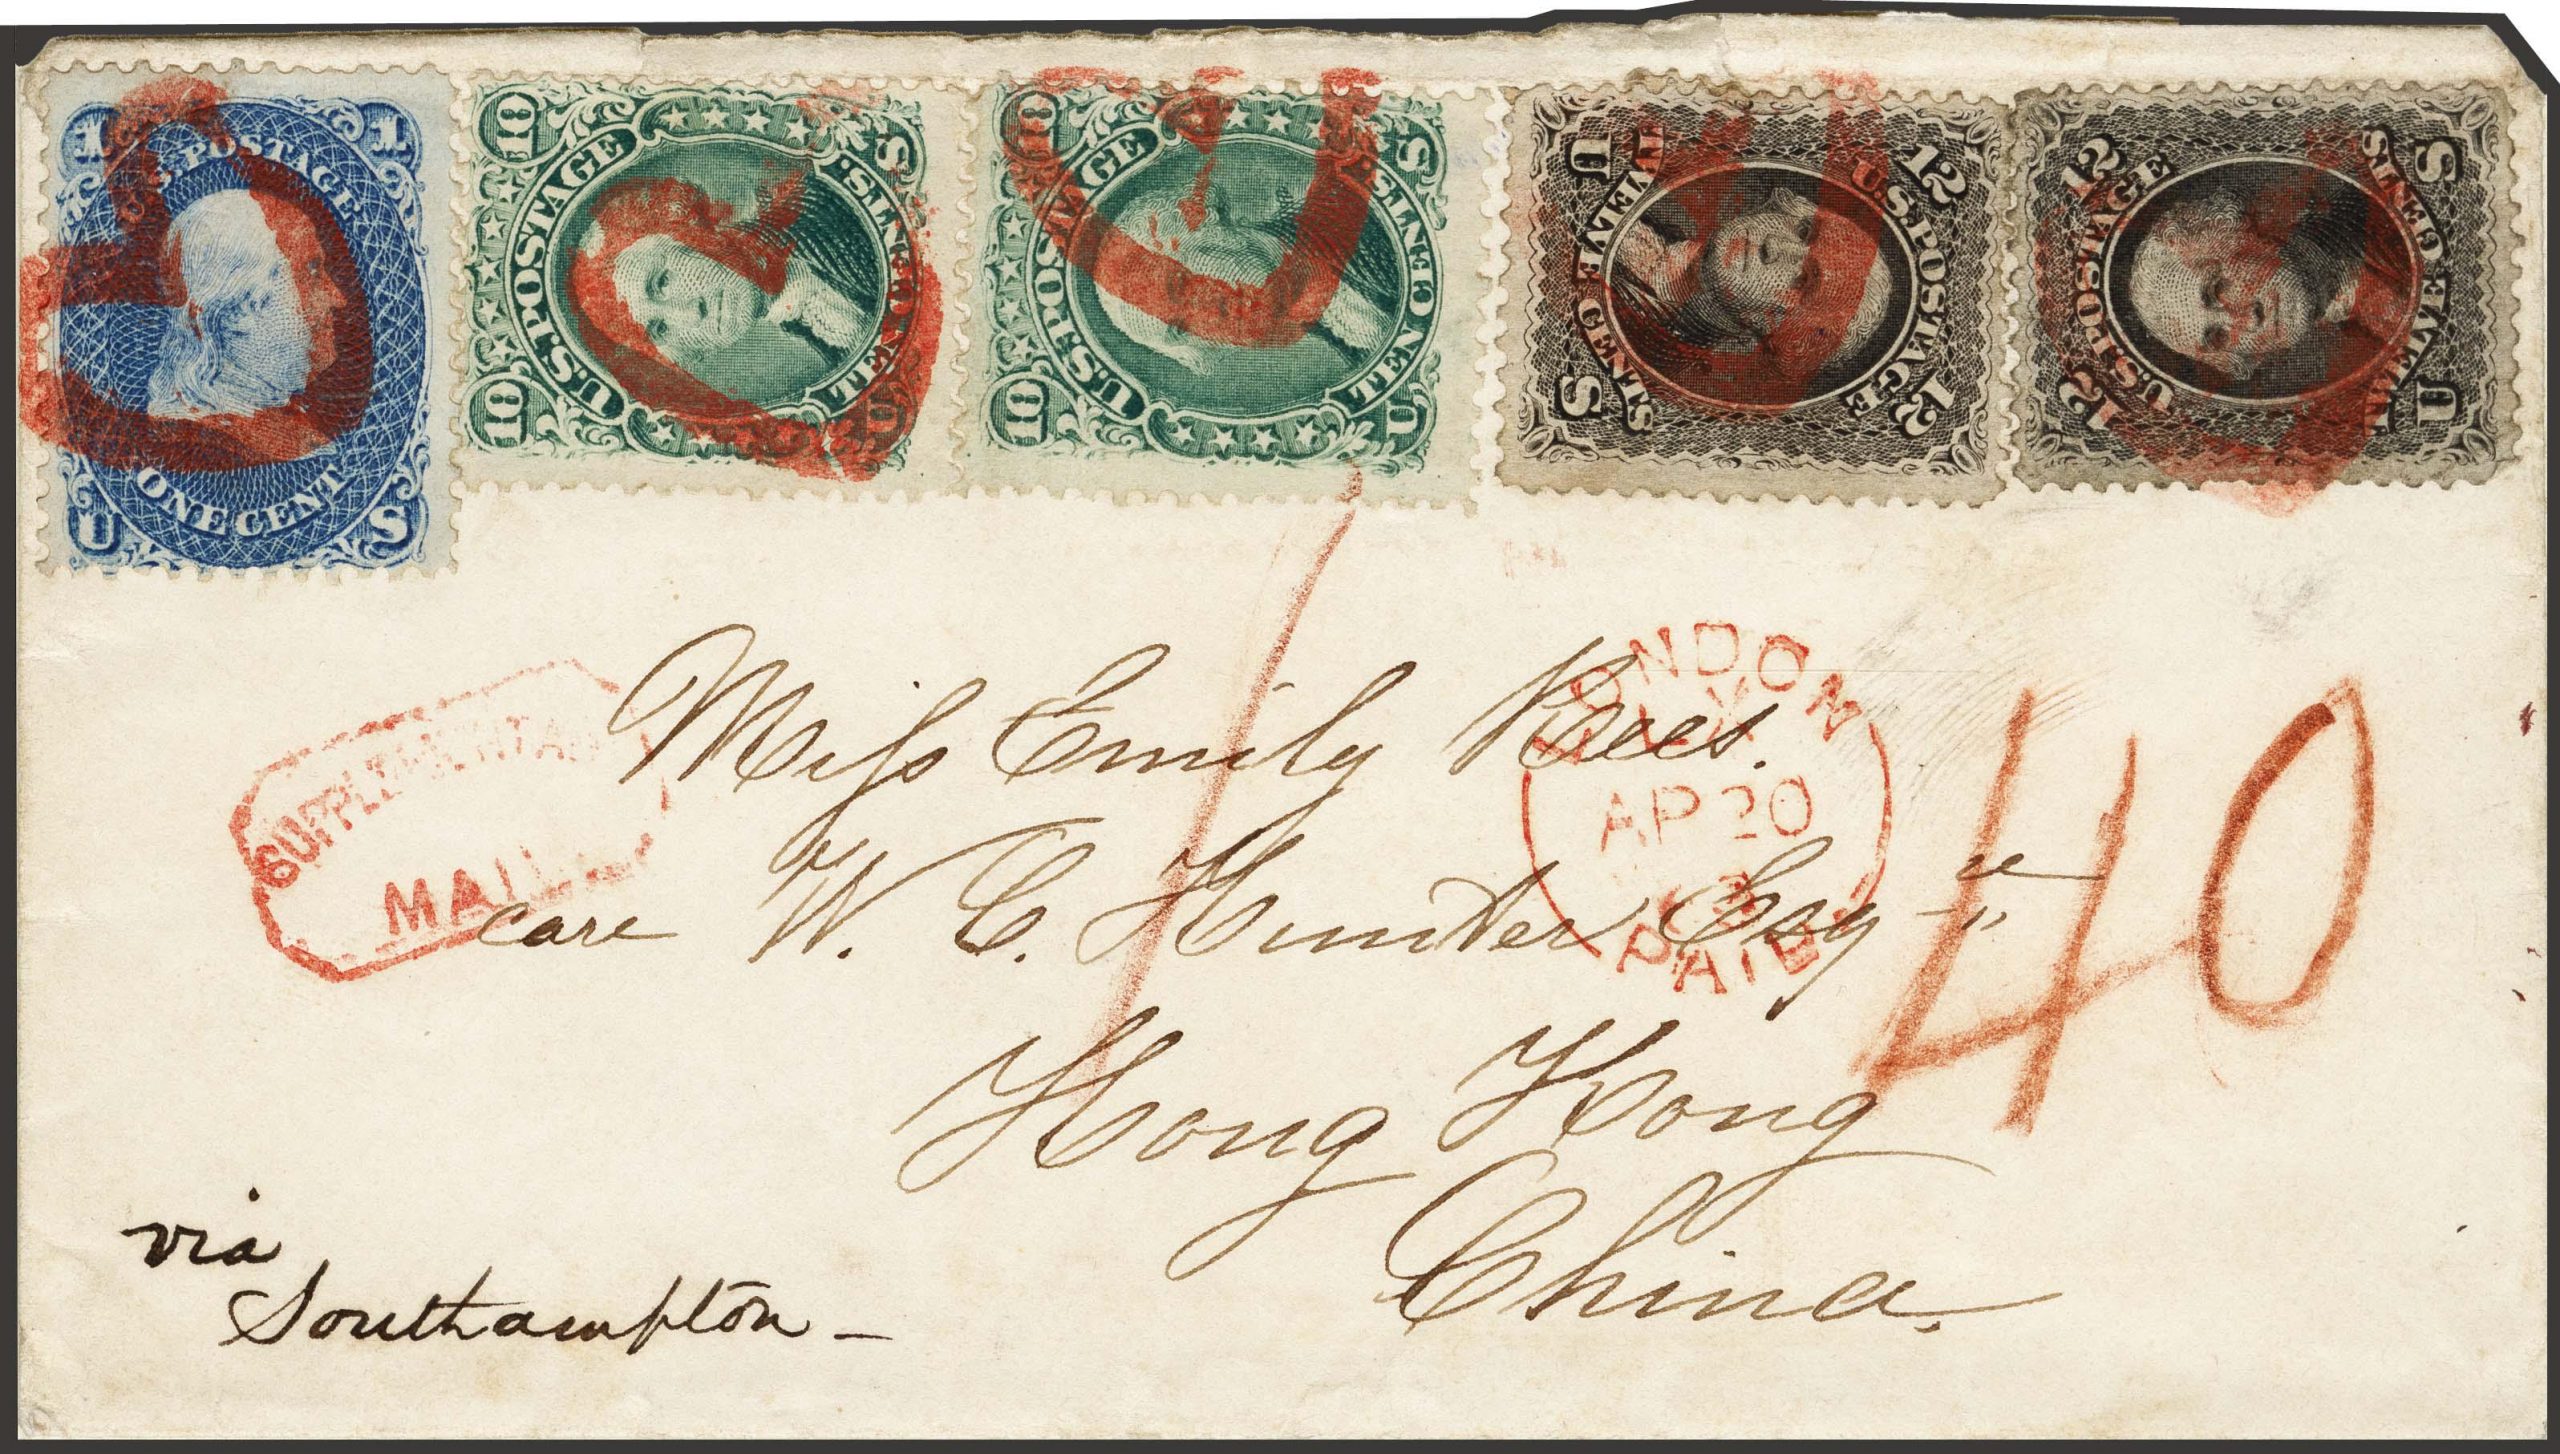 1 1
U.S. POSTAGE
ONE CENT
U S
10 U.S. POSTAGE 10
U.S. TEN CENTS
10 U.S. POSTAGE 10
U.S. TEN CENTS
12 U.S. POSTAGE 12
U TWELVE CENTS S
12 U.S. POSTAGE 12
U TWELVE CENTS S
SUPPLEMENTARY
MAIL
LONDON
AP 20
PAID
40
Miss Emily Rees.
care W. C. Hunter Esqre
Hong Kong
China.
via
Southampton –